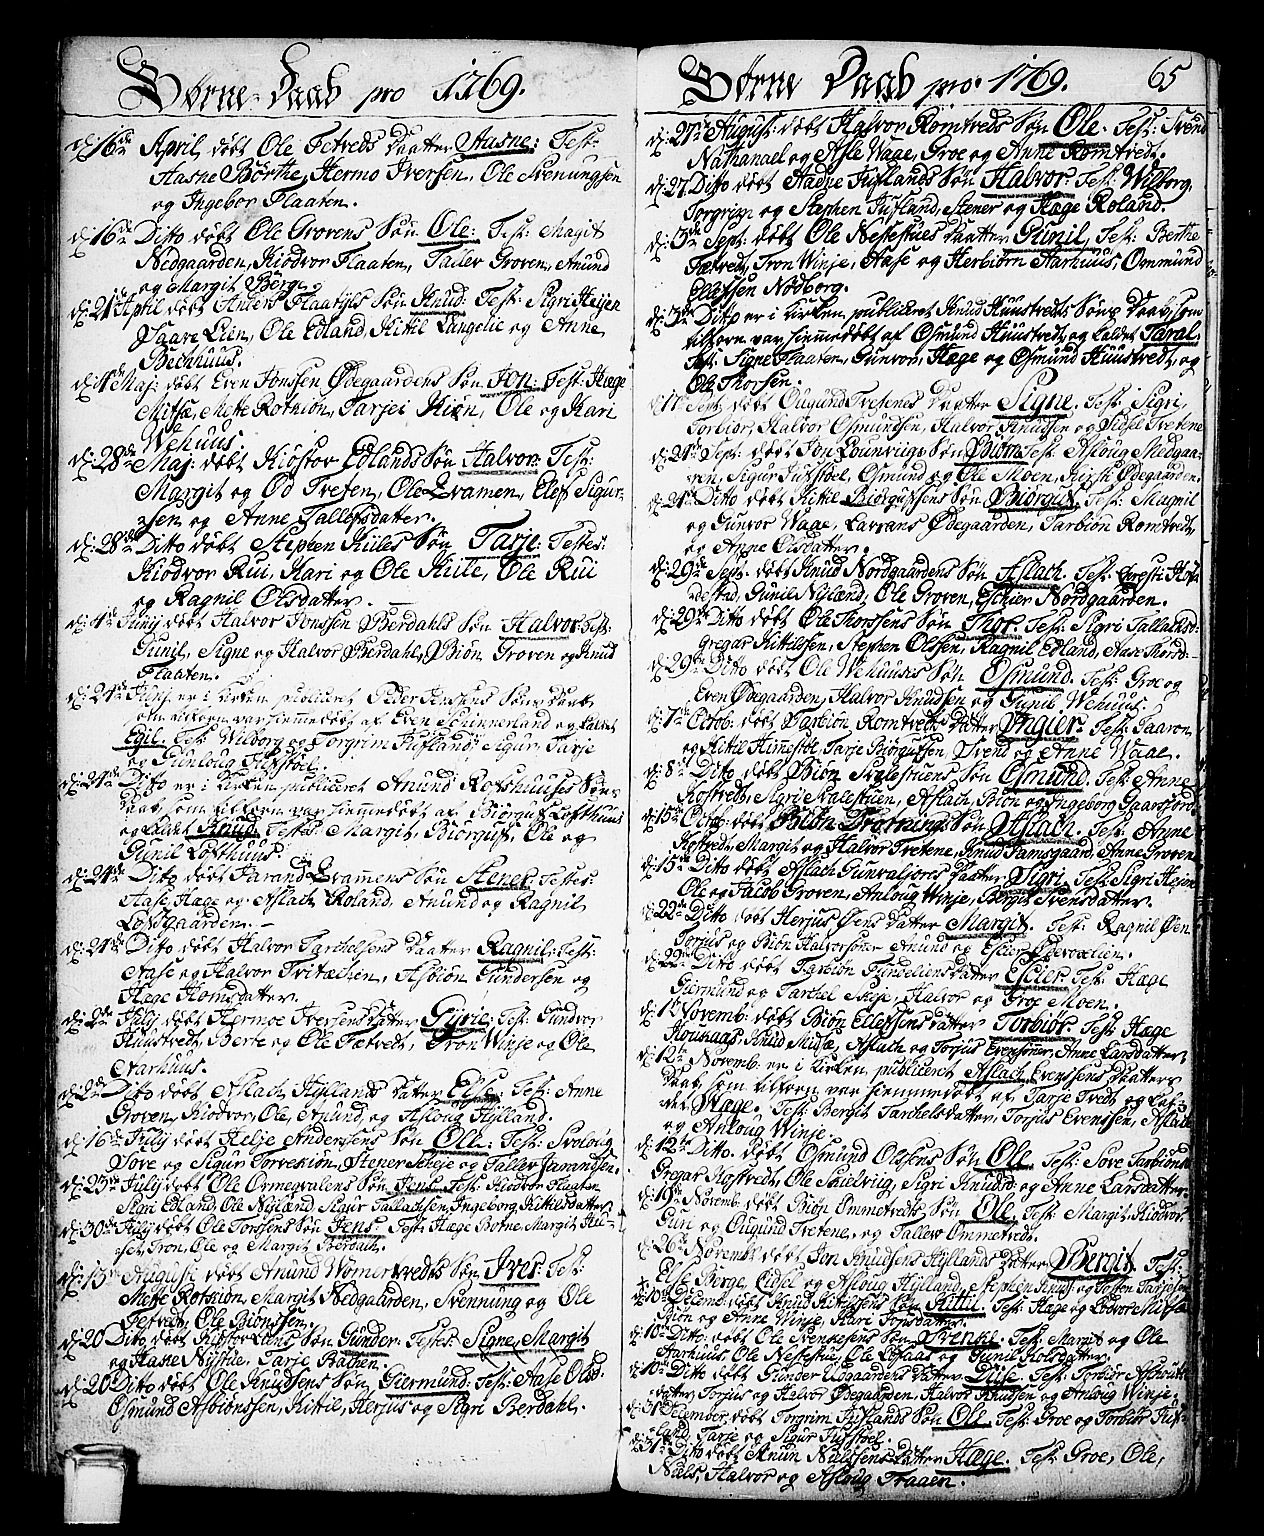 Børne Daab pro 1769.
d: 16de April døbt Ole Fetveds Daatter Aasne: Test:
Aasne Børthe, Hermo Iversen, Ole Svenungsen
og Ingebor Flaaten.
d: 16de Ditto døbt Ole Grovens Søn Ole: Test: Margit
Nedgaarden, Kiodvor Flaaten, Tallev Groven, Anund
og Margit Berge.
d: 21de April døbt Anders Flaatyls Søn Knud: Test: Sigri Heyen
Saave Lien, Ole Edland, Kittil Langelie og Anne
Bechhuus.
Maj: døbt Even Jonssen Ødegaardens Søn Jon: Test: Hæge
Midsæ, Mette Rotkiøn, Tarjei Kiøn, Ole og Kari
Wehuus.
d: 28de Maj: døbt Kiøstov Edlands Søn Halvor: Test:
Margit og Od Treten, Ole Qvamen, Elef Sigur-
sen og Anne Tallefsdater.
d: 28de Ditto døbt Stephen Kiiles Søn Tarje: Testes:
Kiodvor Rui, Kari og Ole Kiile, Ole Rui
og Ragnil Olsdatter.
d: 4de Junij døbt Halvor Jonssen Berdahls Søn Halvor Test:
Gunil, Signe og Halvor Berdahl, Biøn Groven og Knud
Flaaten.
d: 24de Junij er i Kirken publiceret Peder Jenssens Søns Daab
som tilforn var hiemmedøbt af Even Schinnerland og kaldet
Egil. Test: Wilborg og Torgrim Jusland, Sigur, Tarje
og Gunloug Jusstøel.
d: 24de Ditto er i Kirken publiceret Anund Lofthuuses Søns
Daab, som tilforn var hiemmedøbt af Biørguf Lofthuus
og kaldet Knud. Testes: Margit, Biørguf, Ole og
Gunil Lofthuus.
d: 24de Ditto døbt Jarand Qvamens Søn Stener. Testes:
Aase, Hæge og Aslach Roland, Anund og Ragnil
Nordgaarden.
d: 24de Ditto døbt Halvor Tarchelsens Daater Ragnil: Test:
Aase og Halvor Tvitæchen, Asbiøn Gundersen og
Hæge Homsdatter.
d: 2de Julij døbt Hermoe Iversens Datter Gyrie. Test: Gundvor
Huustvedt, Berte og Ole Fætvedt, Tron Winje og Ole
Aarhuus.
d: 2de Ditto døbt Aslach Hylands Datter Else: Test: Anne
Groven, Kiodvor, Ole, Anund og Asloug Hylland.
d: 16de Julij døbt Helje Andersens Søn Ole: Test: Svaloug
Sove og Sigur Torvekiøn, Stener Scheje og Tallev Jarandsen.
d: 23de Julij døbt Ole Ormegvalens Søn Jens. Test: Kiodvor Flaaten
Kari Edland, Ole Nyland, Sigur Tallachsen, Ingeborg Kittilsdatter
d: 30de Julij døbt Ole Torssens Søn Jens. Test: Hæge Botne, Margit
Tron, Ole og Margit Berdahl.
d: 13de Augusti døbt Anund Wormertvedts Søn Iver: Test:
Mette Rotkiøn, Margit Nedgaarden, Svennung og Ole
Fetvedt, Ole Biønssen.
d: 20 Ditto døbt Kiøstov Liens Søn Gunder. Testes: Signe, Margit
og Aasne Nystøe, Tarje Bachen.
d: 20 Ditto døbt Ole Knudsens Søn Giermund: Test: Aase Olsd:
Osmund Asbiønssen, Kittil, Herjus og Sigri Berdahl.
Børne Daab pro: 1769. 65
d: 27de August: døbt Halvor Romtveds Søn Ole. Test: Svend
Nathanael og Asle Wage, Groe og Anne Romtvedt.
d: 27 Ditto døbt Aadne Juslands Søn Halvor: Test: Wilborg,
Torgrim og Stephen Jusland, Stener og Hæge Roland.
d: 3de Sept: døbt Ole Nessestues Daatter Gunil, Test: Berthe
Fætvedt, Tron Winje, Aase og Herbiørn Aarhuus, Ommund
Olafssen Nodborg.
d: 3de Ditto er i Kirken publiceret Knud Huustvedts Søns Daab, som
tilforn var hiemmedøbt af Osmund Huustvedt, og kaldet Taral.
Test: Signe Flaaten, Gunvor, Hæge og Osmund Huustvedt, og
Ole Thorsen.
Sept: døbt Ougund Tvetenes Daatter Signe. Test: Sigri,
Torbiør, Halvor Osmundsen, Halvor Knudsen og Sidsel Tvetene
d: 21de Sept: døbt Jon Lounriigs Søn Biørn Test: Asloug Nedgaa-
ren, Sigur Jusstøel, Osmund og Ole Moen, Kirsti Ødegaarden
d: 21de Ditto døbt Kittil Biørgufsens Søn Biørguf. Test: Magnil
og Gunvor Waae, Lavrans Ødegaarden, Tarbiøn Romtvedt
og Anne Olsdatter.
d: 29de Sept. døbt Knud Nordgaardens Søn Aslach. Test: Gresti
Gunil Nyland, Ole Groven, Eschier Nordgaarden.
d: 29de Ditto døbt Ole Thorssens Søn Thor. Test: Sigri Tallachsd:
Gregar Kittelsen, Stephen Olssen, Ragnil Edland, Aase Thord-
d: 29de Ditto døbt Ole Wehuuses Søn Osmund. Test: Groe og
Even Ødegaarden, Halvor Knudsen og Gunil Wehuus.
d: 7de Octob: døbt Tarbiøn Romtvedts Datter Ingier. Test: Taaron
og Kittil Himmestøl, Tarje Biørgufsen, Svend og Anne Waae.
d: 8de Ditto døbt Biøn Svalestuens Søn Osmund. Test: Anne
Hostvedt, Sigri Svalestuen, Aslach, Biøn og Ingeborg Gaarsjord
d: 15de Octob: døbt Biøn Drotnings Søn Aslach. Test: Anne
Hostvedt, Margit og Halvor Tvetene, Knud Jamsgaard, Anne Groven
d: 15de Ditto døbt Aslach Gunvalsjores Daatter Sigri. Test: Sigri Heyen
Ole og Jacob Groven, Anloug Winje, Bergit Svensdatter.
d: 22de Ditto døbt Herjus Øens Datter Margit. Test: Ragnil Øen
Torjus og Biøn Halvorsøner, Anund og Eschier
d: 29de Ditto døbt Tarbiøn Gundelinsdatter Eschier Test: Hæge
Giermund og Tarchel Skeje, Halvor og Groe Moen.
d: 1 Novemb: døbt Biøn Ellefsens Datter Torbiør. Test: Hæge
Knud Midsæ, Aslach og Torjus Evensønner, Anne Larsdatter
d: 12te Novemb: er i Kirken publiceret Aslach Evenssens Daatters
Daab som tilforn var hiemmedøbt af Tarje Tvedt og kal-
det Wæge. Test: Bergit Tarchelsdatter, Torjus Evenssen, Aslach
og Anloug Winje.
d: 12te Ditto. døbt Osmund Olssens Søn Ole. Test: Sove Tarbiønsd
Gregar Hostvedt, Ole Skielvrig, Sigri Knudsd: og Anne Larsdatter
d: 19de Novemb: døbt Biøn Ommetveds Søn Ole. Test: Margit, Kiodvor
Guri og Ougund Tvetene, og Tallev Ommetvedt.
d: 26de Novemb: døbt Jon Knudsens Hylands Datter Bergit. Test:
Else Berge, Sidsel og Asloug Hylland, Stephen Knuds: og Tosten Tarjesen
d: 10de Decemb: døbt Knud Kittilssens Søn Kittil. Test: Hæge og Lodvor Midsæ
Biøn og Anne Winje, Kari Jonsdatter.
d: 10de Ditto. døbt Ole Svenkesens Søn Svenke. Test: Margit og Ole
Aarhuus, Ole Nessestue, Ole Løsaas og Gunil Rolsdatter.
d: 10de Ditto døbt Gunder Udgaardens Datter Duse. Test: Torbiør
datter, Torjus og Halvor Ødegaarden, Halvor Knudsen og Anloug Winje.
d: 31 December, døbt Torgrim Juslands Søn Ole. Test: Groe og Torbiør Jus-
land, Tarje og Sigur Jusstøel.
d: 31te Ditto døbt Anun Nielsens Datter Hæge. Test: Groe, Ole,
Niels, Halvor og Asloug Traaen.